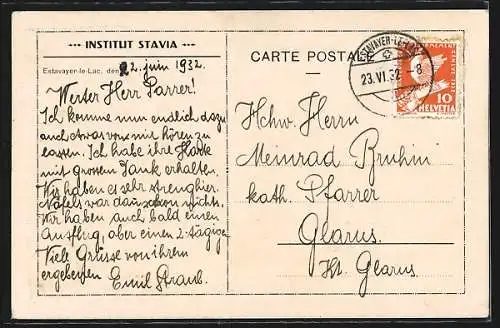 --- INSTITUT STAVIA ---
Estavayer-le-Lac, den 22. juin 1932.
Werter Herr Parrer!
Ich komme nun endlich dazu
auch etwas von mir hören zu
lassen. Ich habe ihre Karte
mit grossem Dank erhalten.
Wir haben es sehr streng hier.
Näfels war da schon nichts.
Wir haben auch bald einen
Ausflug, aber einen 2-tägigen
Viele Grüsse von ihrem
ergebenen Emil Straub.
CARTE POSTALE
ESTAVAYER-LE-LAC
23.VI.32 - 8
10
HELVETIA
Hchw. Herrn
Meinrad Bruhin
kath. Pfarrer
Glarus
Kt. Glarus.